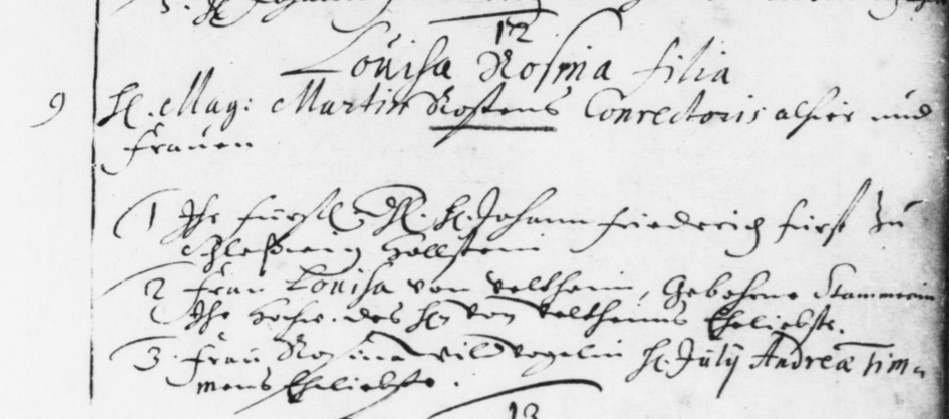 12
Louisa Rosina filia
9 H. Mag: Martin Rostens Conrectoris alhier und
Frauen
1 Ihr Fürstl. H. Johann Friederich Fürst zu
Schleswig Hollstein
2 Frau Louisa von Veltheim, Gebohrne Stammerin
Ihr Hochw. des H. von Veltheims Eheliebste.
3. Frau Rosina Wildvogelin H. Julÿ Andreæ Tim-
mens Eheliebste.
13